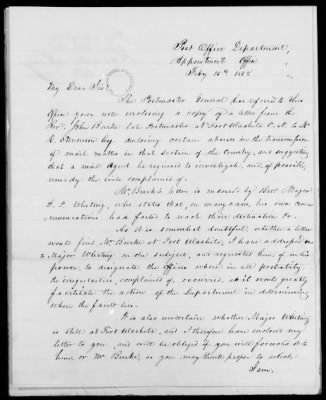 Post Office Department,
Appointment Office
Feby 15th 1855
My Dear Sir:
The Postmaster General has referred to this
Office your note enclosing a copy of a letter from the
Revd. John Burke late Postmaster at Fort Washita C. N. to Mr
R. Stevenson Esq. noticing certain abuses in the transmission
of mail matter in that section of the Country, and suggesting
that a mail Agent be required to investigate, and, if possible,
remedy the evils complained of.
Mr Burke's letter is endorsed by Bvt Major
Whiting, who states that, in many cases, his own com-
munications had failed to reach their destination &c.
As it is somewhat doubtful, whether a letter
would find Mr Burke at Fort Washita, I have addressed
Major Whiting on the subject, and requested him, if in his
power, to designate the Offices where in all probability
the irregularities, complained of, occurred, as it would greatly
facilitate the action of the Department in determining
where the fault lies.
It is also uncertain whether Major Whiting
is still at Fort Washita, and I therefore have enclosed my
letter to you, and will be obliged if you will forward it to
him or Mr Burke, as you may think proper to select
I am,